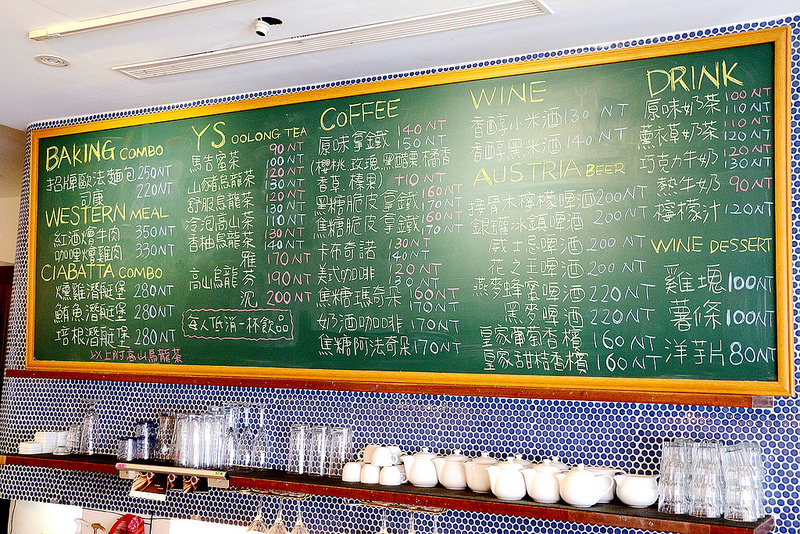 BAKING COMBO
招牌歐法麵包 250NT
可康 220NT
WESTERN MEAL
紅酒燴牛肉 350NT
咖哩燴雞肉 330NT
CIABATTA COMBO
燻雞潛艇堡 280NT
鮪魚潛艇堡 280NT
培根潛艇堡 280NT
以上附高山烏龍茶
YS OOLONG TEA
馬吉蜜茶 90NT
100NT
山豬烏龍茶 120NT
130NT
舒服烏龍茶 120NT
130NT
冷泡高山茶 110NT
香柚烏龍茶 130NT
140NT
雁 170NT
高山烏龍 芬 190NT
沉 200NT
每人低消一杯飲品
COFFEE
原味拿鐵 140NT
150NT
(櫻桃 玫瑰 黑醋栗 橘香
香草 榛果) +10NT
黑糖脆皮拿鐵 160NT
170NT
焦糖脆皮拿鐵 160NT
170NT
卡布奇諾 130NT
140NT
美式咖啡 120NT
130NT
焦糖瑪奇朵 160NT
170NT
奶酒咖啡 170NT
焦糖阿法奇朵 170NT
WINE
香醇小米酒 130NT
香醇黑米酒 140NT
AUSTRIA BEER
接骨木檸檬啤酒 200NT
銀檸冰鎮啤酒 200NT
威士忌啤酒 200NT
花之王啤酒 200NT
燕麥蜂蜜啤酒 220NT
黑麥啤酒 220NT
皇家葡萄香檳 160NT
皇家甜桔香檳 160NT
DRINK
原味奶茶 100NT
110NT
薰衣草奶茶 110NT
120NT
巧克力牛奶 120NT
130NT
熱牛奶 90NT
檸檬汁 120NT
WINE DESSERT
雞塊 100NT
薯條 100NT
洋芋片 80NT